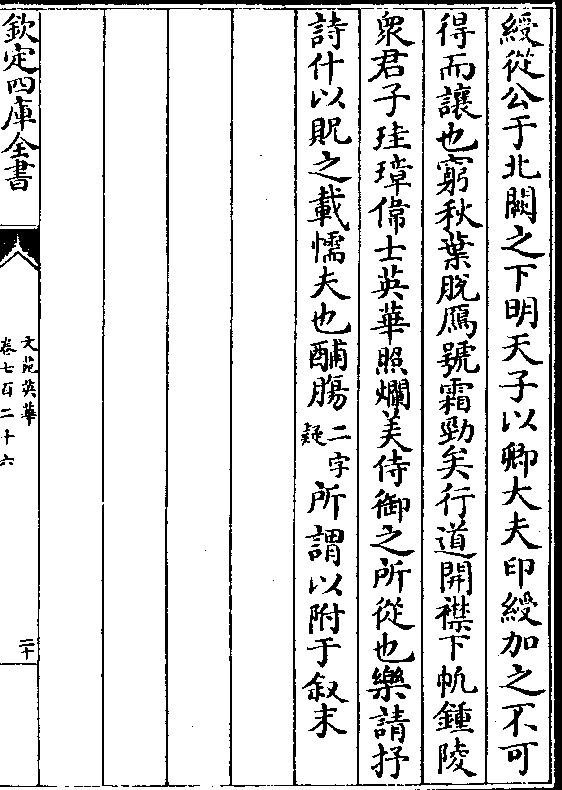 綬從公于北闕之下明天子以卿大夫印綬加之不可
得而讓也窮秋葉脫鴈號霜勁矣行道開襟下帆鍾陵
衆君子珪璋偉士英華照爛美侍御之所從也樂請抒
詩什以貺之載懦夫也酺膓二字疑所謂以附于叙末
欽定四庫全書
文苑英華
卷七百二十六
二十